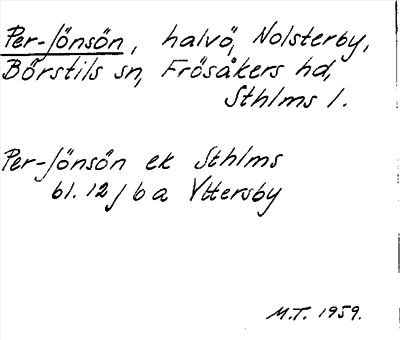 Per-Jönsön, halvö, Nolsterby,
Börstils sn, Frösåkers hd,
Sthlms l.
Per-Jönsön ek Sthlms
bl. 12 J 6 a Yttersby
M.T. 1959.